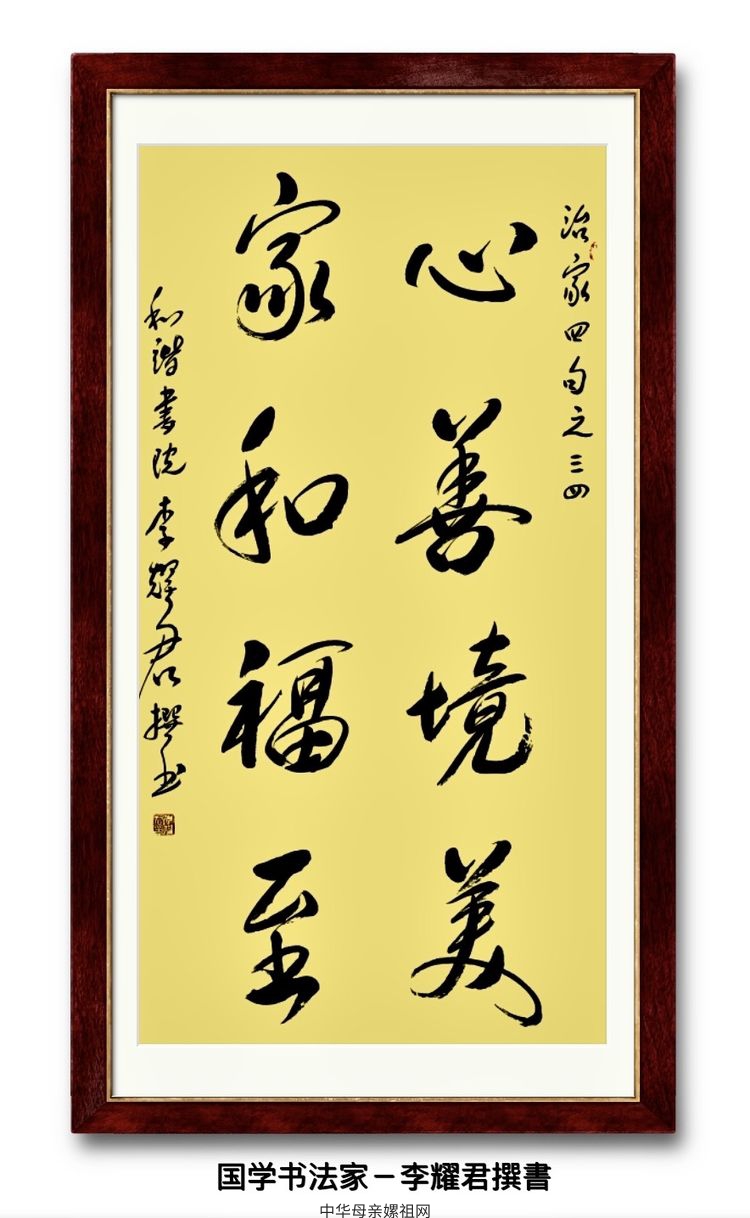 治家四句之三四
心善境美
家和福至
和谐书院李耀君撰书
国学书法家－李耀君撰書
中华母亲嫘祖网